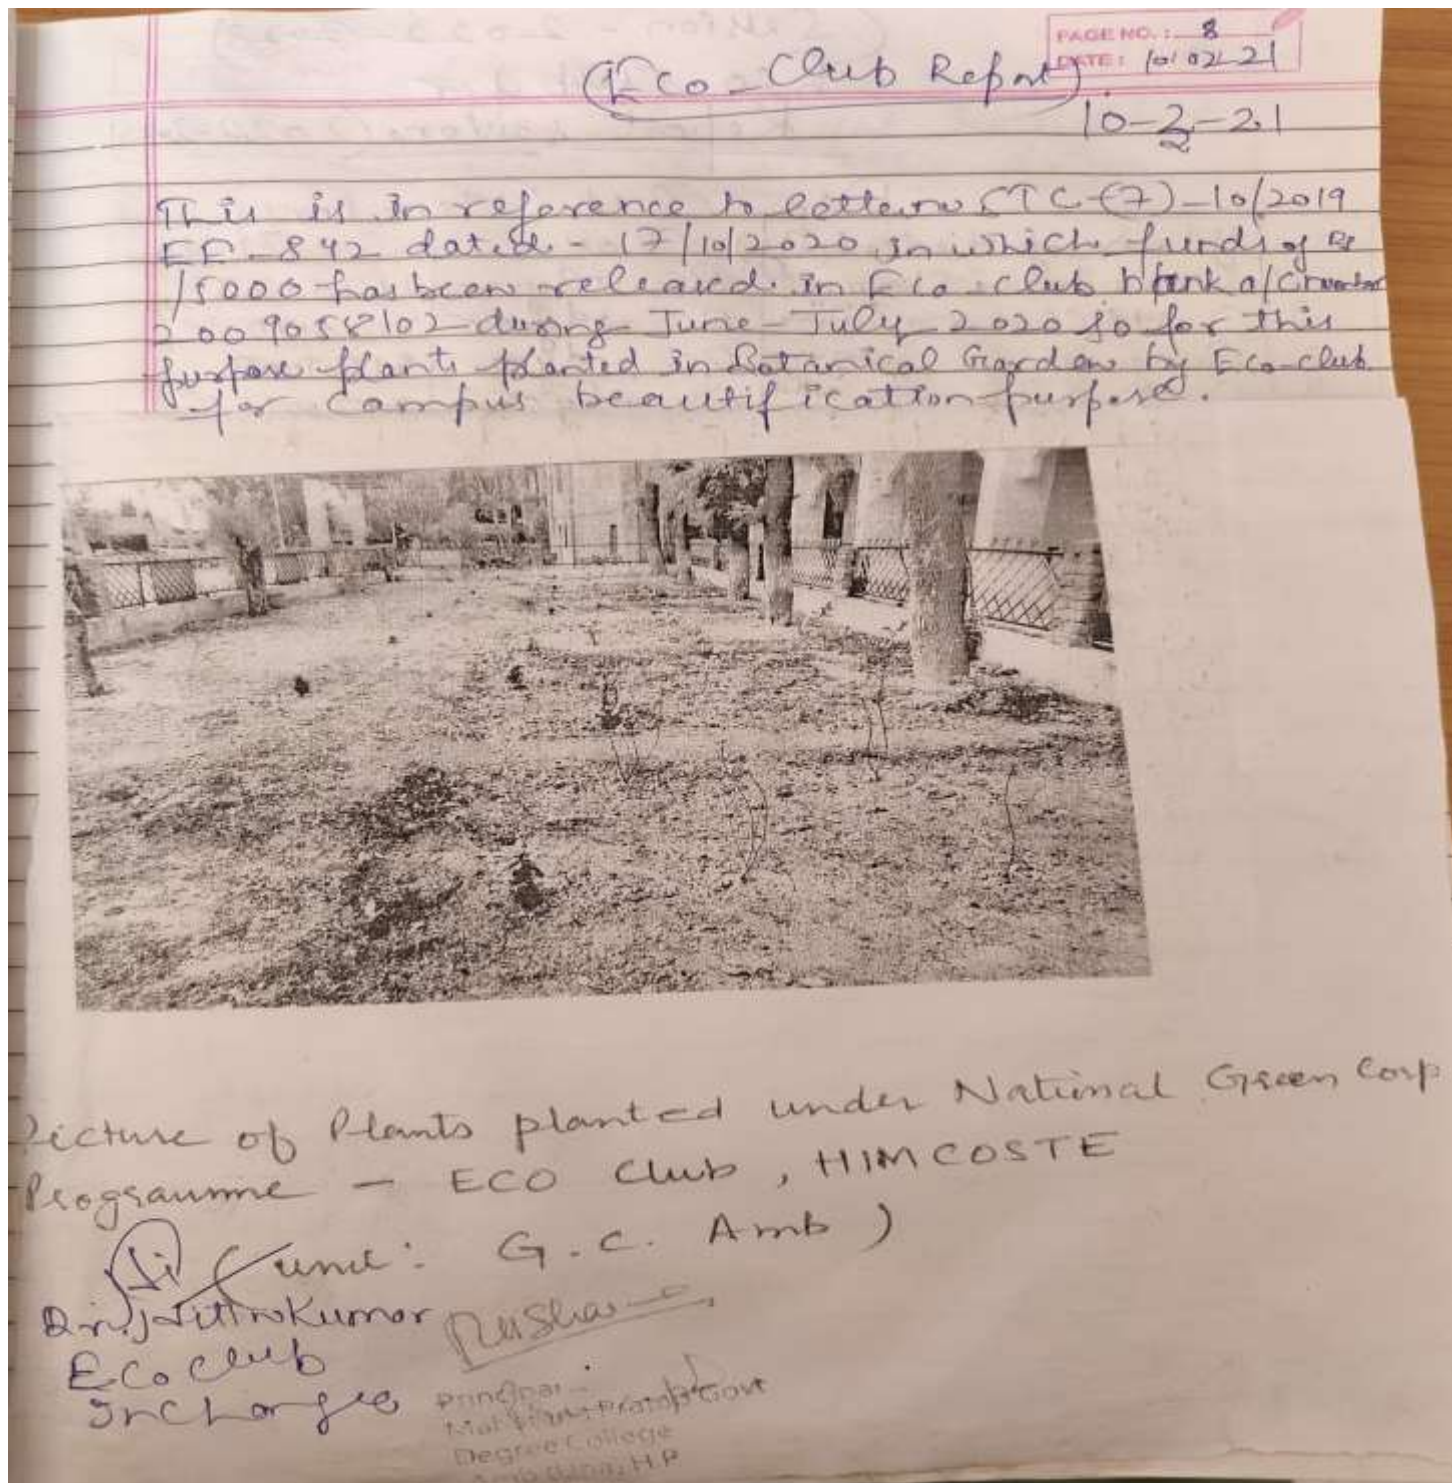 PAGE NO.: 8
DATE: 10/02/21
(Eco-Club Report)
10-2-21
2
This is in reference to letter no STC-(7)-10/2019
EE-842 dated - 17/10/2020 in which funds of Rs
15000 has been released in Eco-club bank a/c number
20090558102 during June-July 2020 so for this
purpose plants planted in Botanical Garden by Eco-club
for campus beautification purpose.
Picture of Plants planted under National Green Corp
Programme - ECO Club, HIMCOSTE
G.C. Amb)
Dr. Kumar
Eco club
Incharge
Principal
Pratap Govt
Degree College
H.P